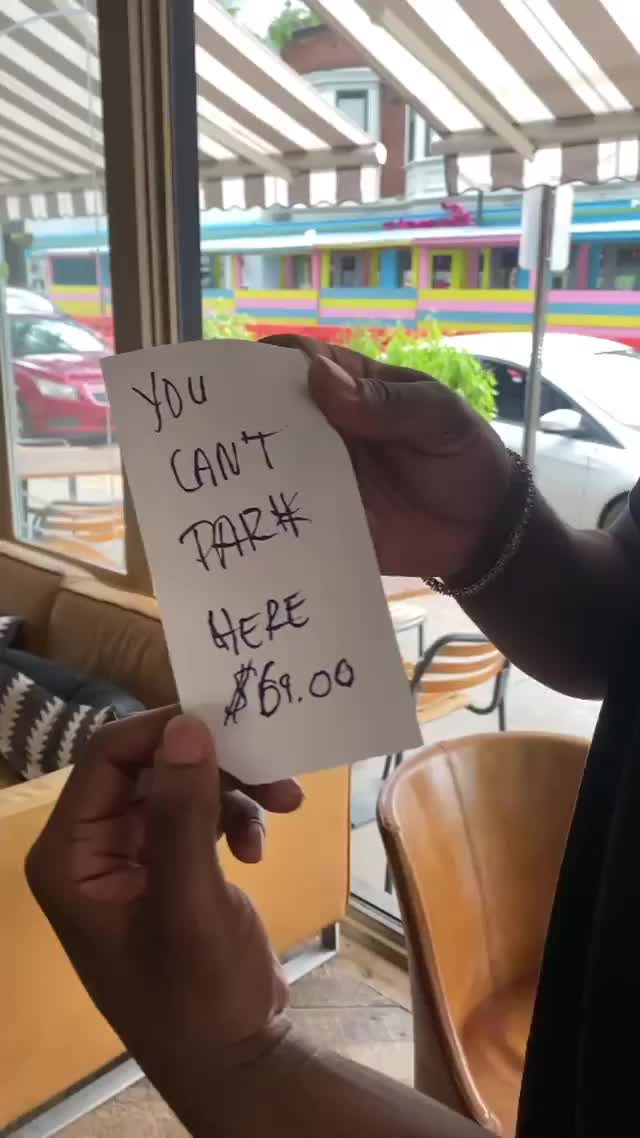 YOU
CAN'T
PARK
HERE
$69.00